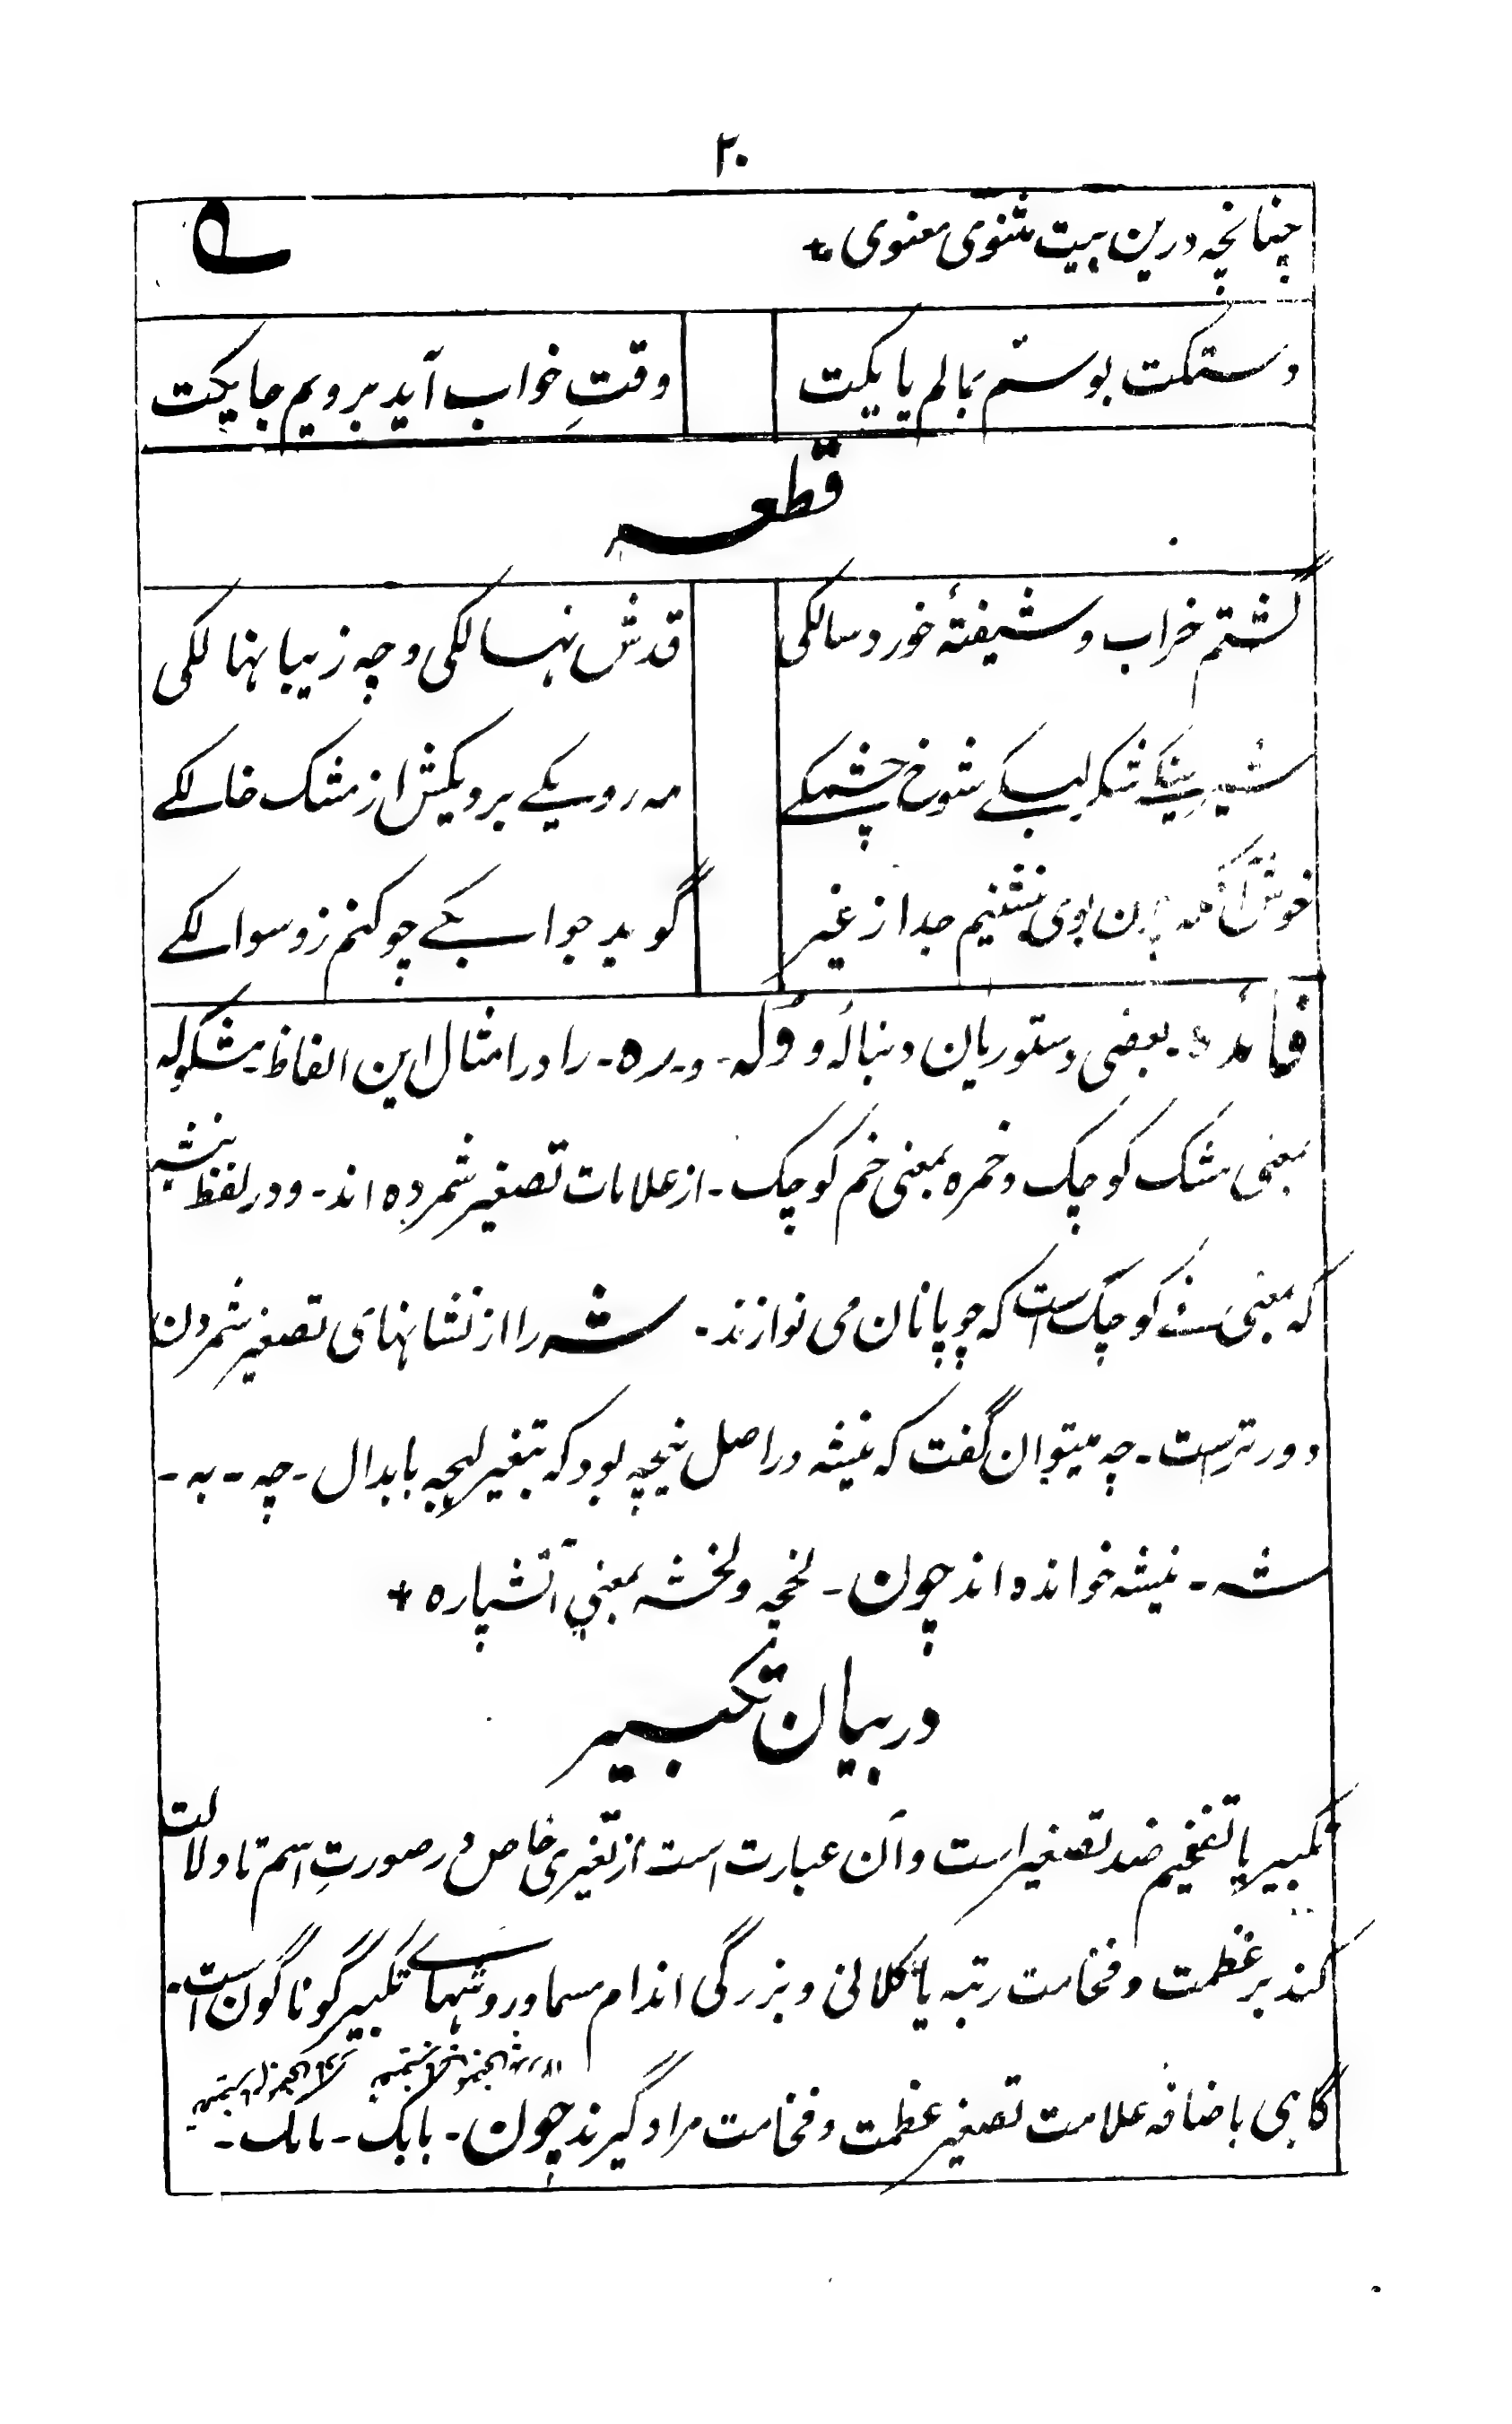 ۲۰
چنانچه درین بیت مثنوی معنوی +
دستکت بوسم بمالم پایکت
وقتِ خواب آید بروبم جایکت
قطعه
گشتم خراب و شیفتهٔ خوردسالکی
قدش نهالکی و چه زیبا نهالکی
شیرینکے شکر لبکے شوخ چشمکے
مه رویکے برویکش از مشک خالکے
خوش آنکه من بوی نشینم جدا از غیر
گوید جوابکے چو کنم زو سوالکے
فائده - بعضی دستوریان دنبالهٔ وله - و - ره - را در امثال این الفاظ مشکوله
بمعنی مشک کوچک و خمره بمعنی خم کوچک - از علامات تصغیر شمرده اند - و در لفظ نیشه
که بمعنی نے کوچک است که چوپانان می نوازند - شه را از نشانهای تصغیر شمردن
دور تر است - چه میتوان گفت که نیشه در اصل نیچه بود که بتغیر لهجه بابدال - چه - به -
شه - نیشه خوانده اند چون - لخچه و لخشه بمعنی آتشپاره +
در بیان تکبیر
تکبیر یا تفخیم ضد تصغیر است و آن عبارت است از تغیری خاص در صورتِ اسم تا دلالت
کند بر عظمت و فخامت رتبه یا کلانی و بزرگی اندام مسما و روشهاے تکبیر گوناگون است -
گاهی باضافه علامت تصغیر عظمت و فخامت مراد گیرند چون - بابک - مامک -